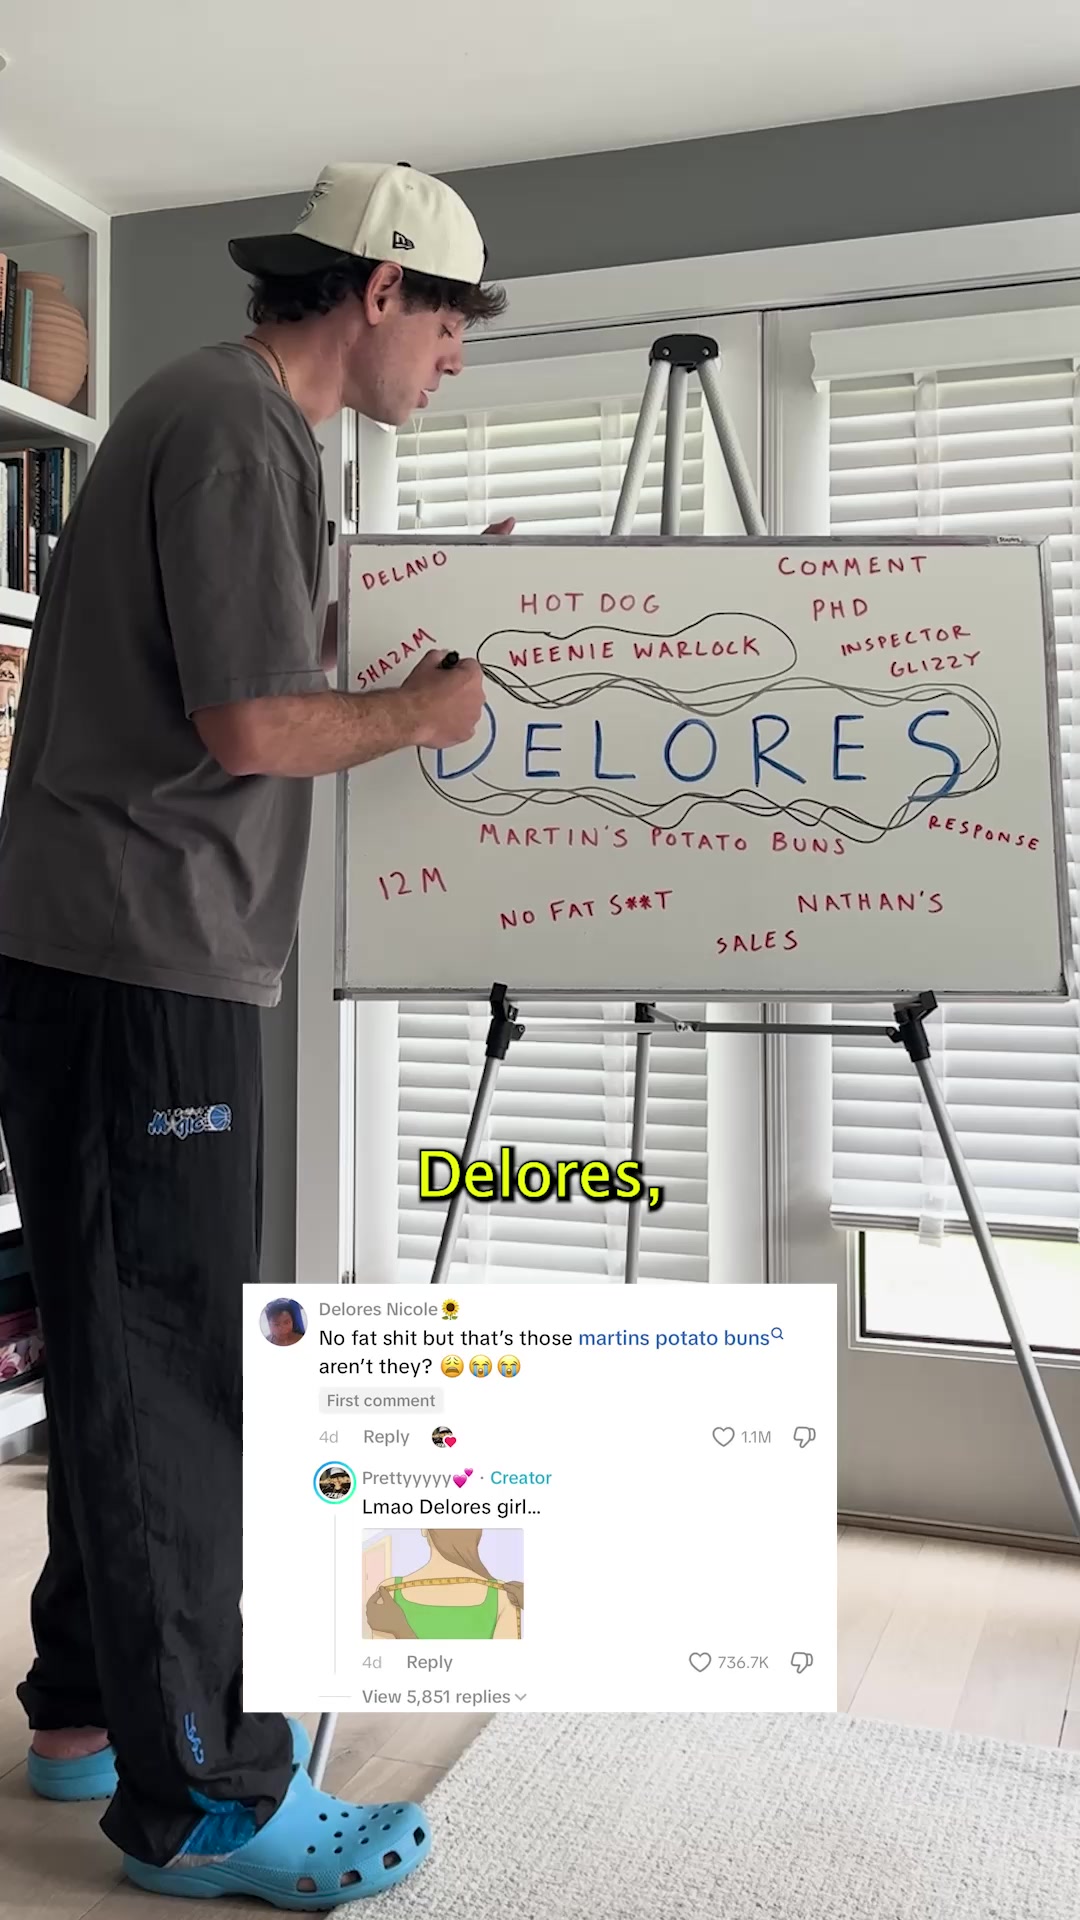 DELANO
COMMENT
HOT DOG
PHD
SHAZAM
WEENIE WARLOCK
INSPECTOR
GLIZZY
DELORES
MARTIN'S POTATO BUNS
RESPONSE
12M
NO FAT S**T
NATHAN'S
SALES
Magic
Delores,
Delores Nicole🌻
No fat shit but that's those martins potato buns
aren't they? 😩😭😭
First comment
4d Reply 1.1M
Prettyyyyy💕 · Creator
Lmao Delores girl...
4d Reply 736.7K
View 5,851 replies